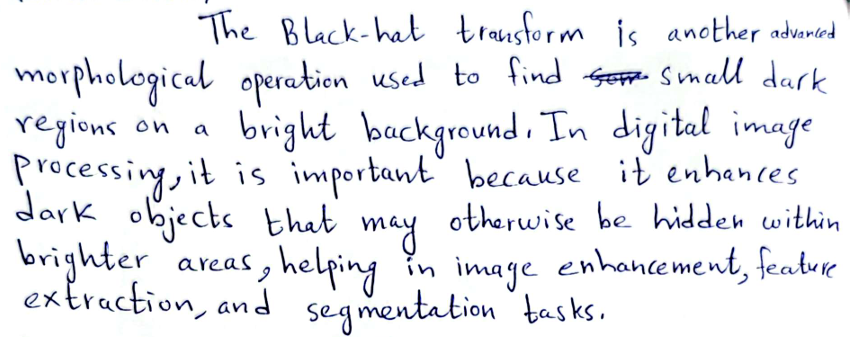 The Black-hat transform is another advanced
morphological operation used to find small dark
regions on a bright background. In digital image
processing, it is important because it enhances
dark objects that may otherwise be hidden within
brighter areas, helping in image enhancement, feature
extraction, and segmentation tasks.